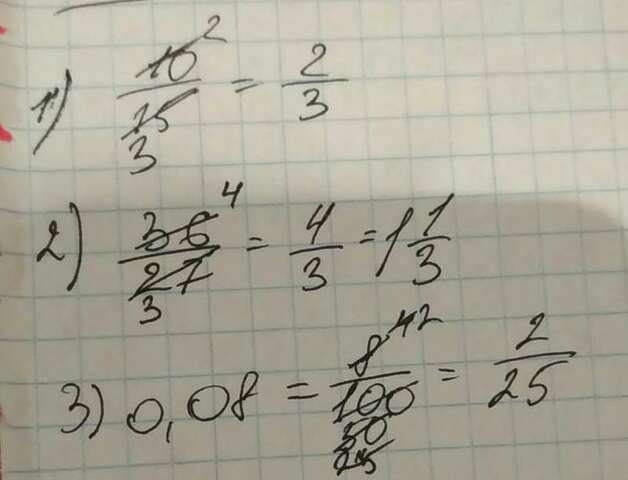 1) 10/15 2 3 = 2/3
2) 36/27 4 3 = 4/3 = 1 1/3
3) 0,08 = 8/100 4 2 50 25 = 2/25